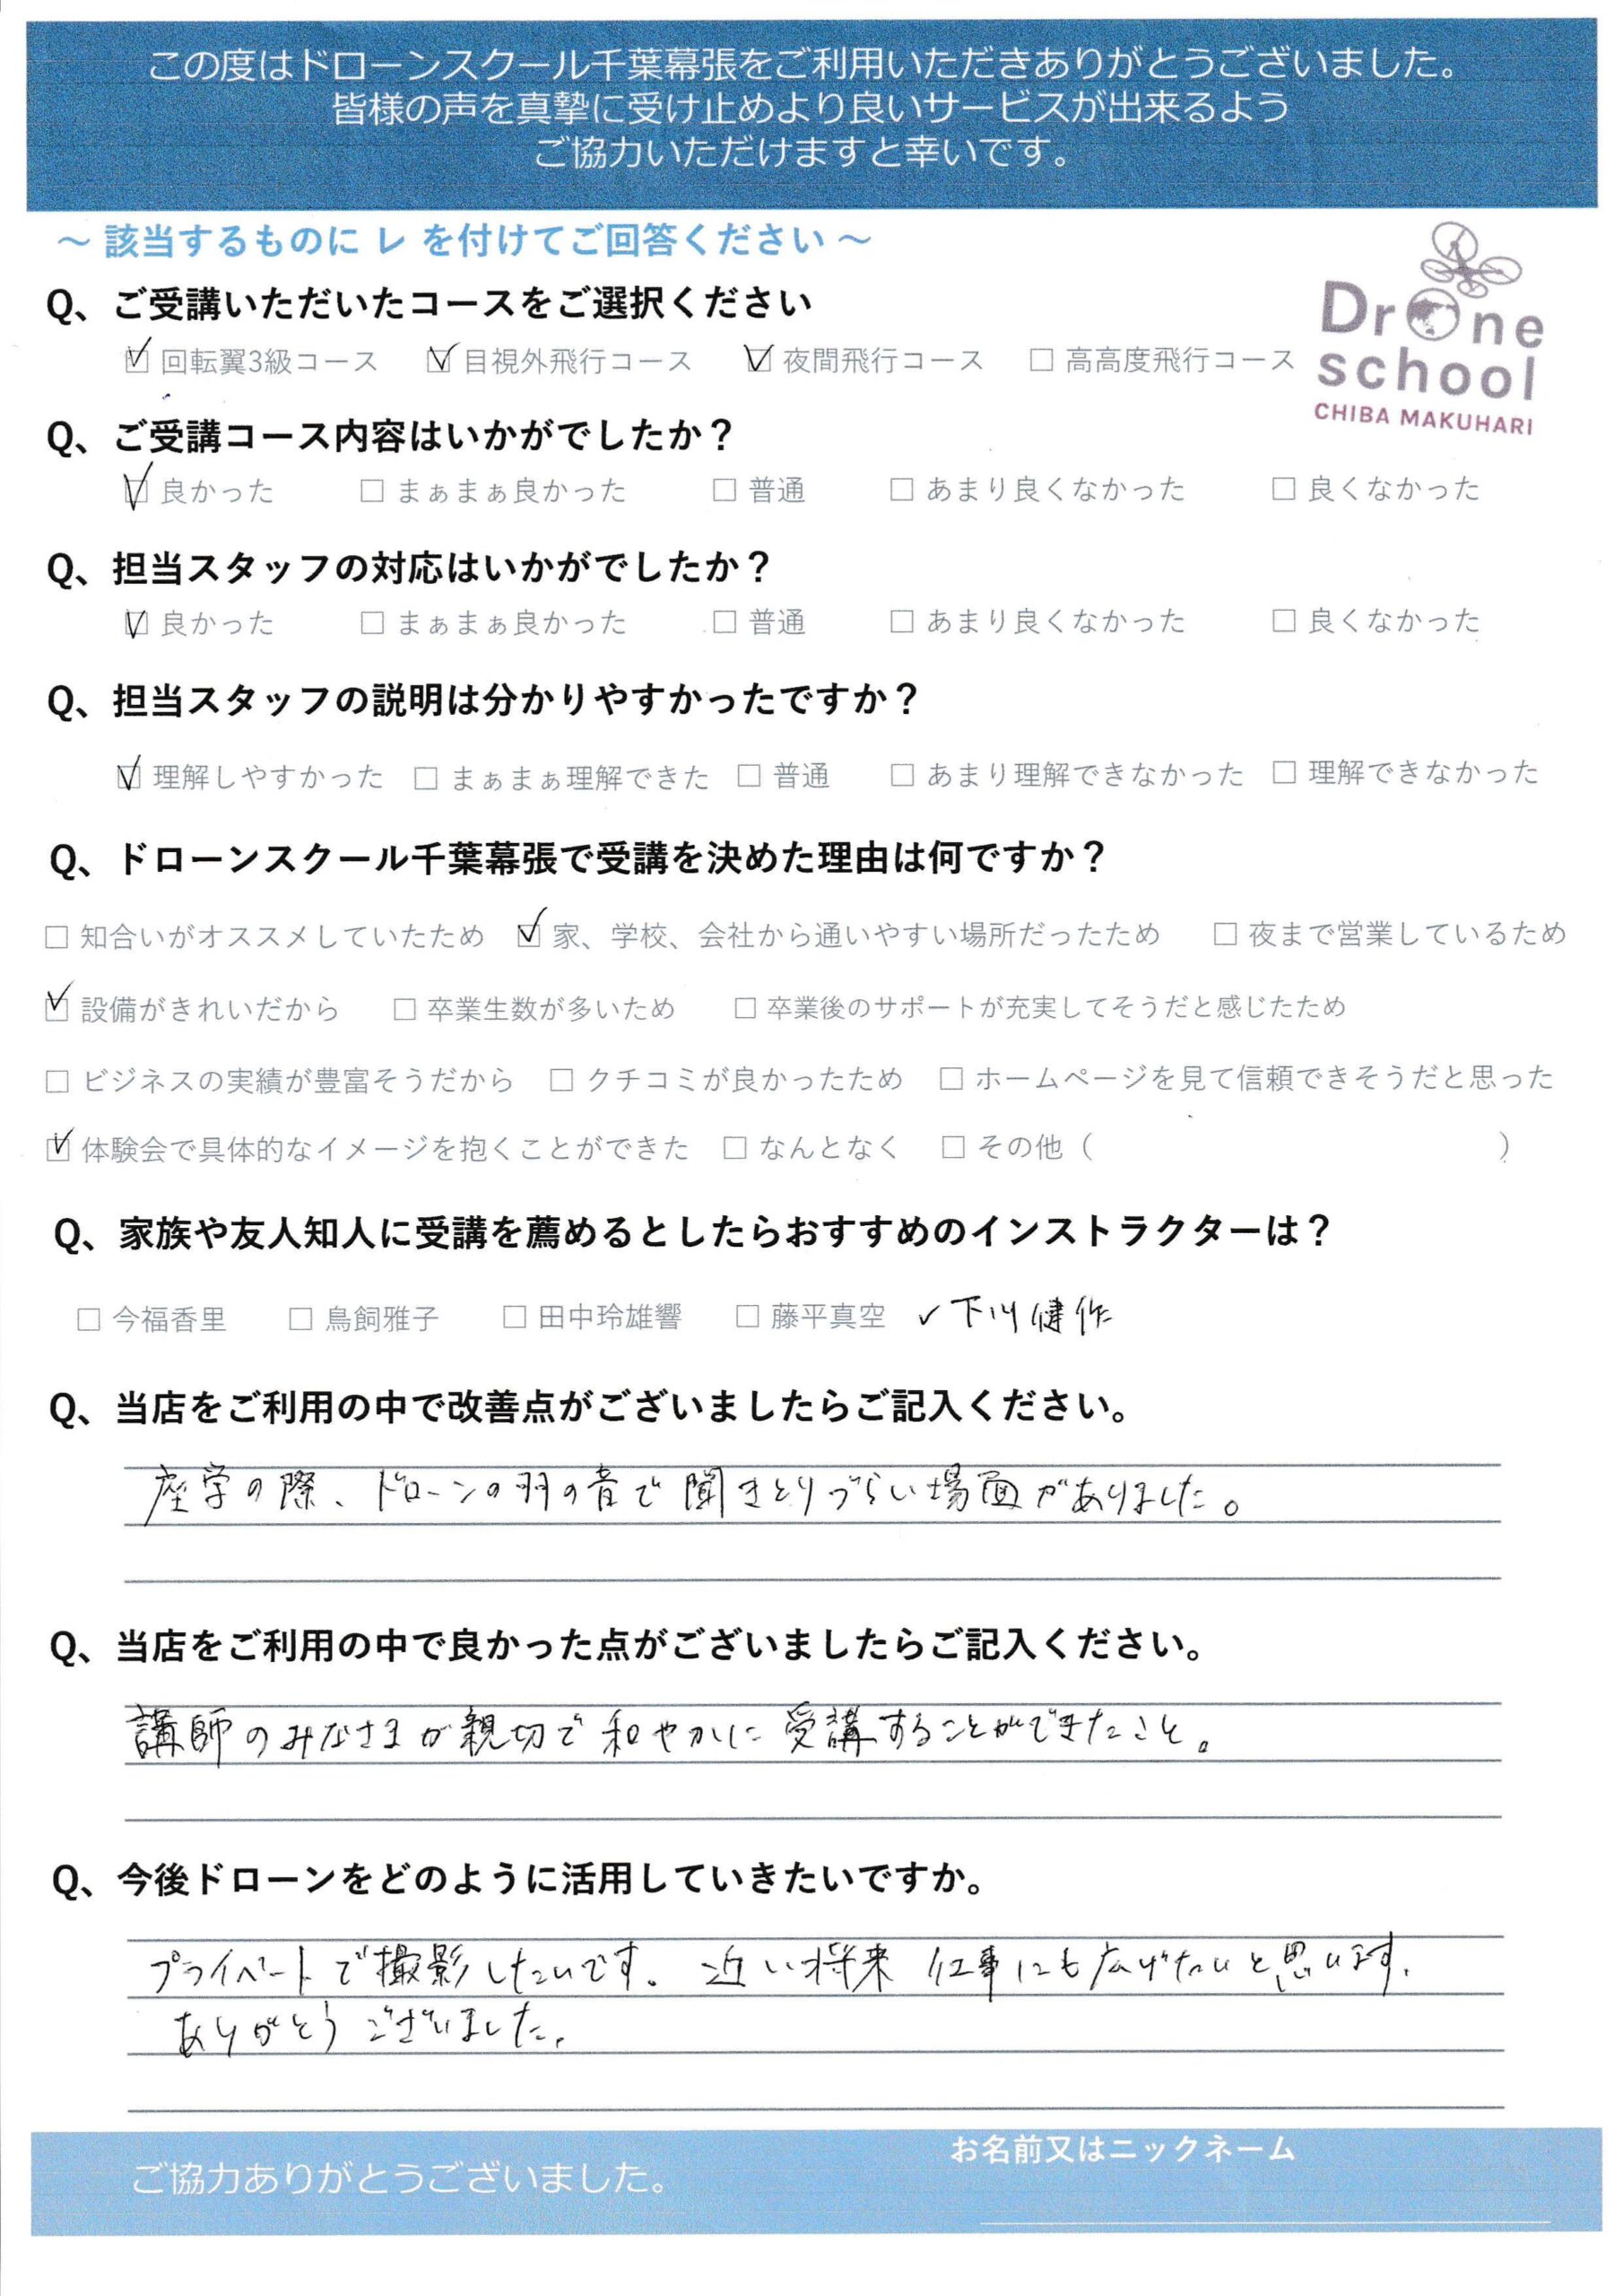 この度はドローンスクール千葉幕張をご利用いただきありがとうございました。
皆様の声を真摯に受け止めより良いサービスが出来るよう
ご協力いただけますと幸いです。
～ 該当するものに レ を付けてご回答ください ～
Drone
school
CHIBA MAKUHARI
Q、ご受講いただいたコースをご選択ください
☑ 回転翼3級コース ☑ 目視外飛行コース ☑ 夜間飛行コース □ 高高度飛行コース
Q、ご受講コース内容はいかがでしたか？
☑ 良かった □ まぁまぁ良かった □ 普通 □ あまり良くなかった □ 良くなかった
Q、担当スタッフの対応はいかがでしたか？
☑ 良かった □ まぁまぁ良かった □ 普通 □ あまり良くなかった □ 良くなかった
Q、担当スタッフの説明は分かりやすかったですか？
☑ 理解しやすかった □ まぁまぁ理解できた □ 普通 □ あまり理解できなかった □ 理解できなかった
Q、ドローンスクール千葉幕張で受講を決めた理由は何ですか？
□ 知合いがオススメしていたため ☑ 家、学校、会社から通いやすい場所だったため □ 夜まで営業しているため
☑ 設備がきれいだから □ 卒業生数が多いため □ 卒業後のサポートが充実してそうだと感じたため
□ ビジネスの実績が豊富そうだから □ クチコミが良かったため □ ホームページを見て信頼できそうだと思った
☑ 体験会で具体的なイメージを抱くことができた □ なんとなく □ その他（ ）
Q、家族や友人知人に受講を薦めるとしたらおすすめのインストラクターは？
□ 今福香里 □ 鳥飼雅子 □ 田中玲雄響 □ 藤平真空 ✓下川健作
Q、当店をご利用の中で改善点がございましたらご記入ください。
座学の際、ドローンの羽の音で聞きとりづらい場面がありました。
Q、当店をご利用の中で良かった点がございましたらご記入ください。
講師のみなさまが親切で和やかに受講することができたこと。
Q、今後ドローンをどのように活用していきたいですか。
プライベートで撮影したいです。近い将来 仕事にも広げたいと思います。
ありがとうございました。
お名前又はニックネーム
ご協力ありがとうございました。